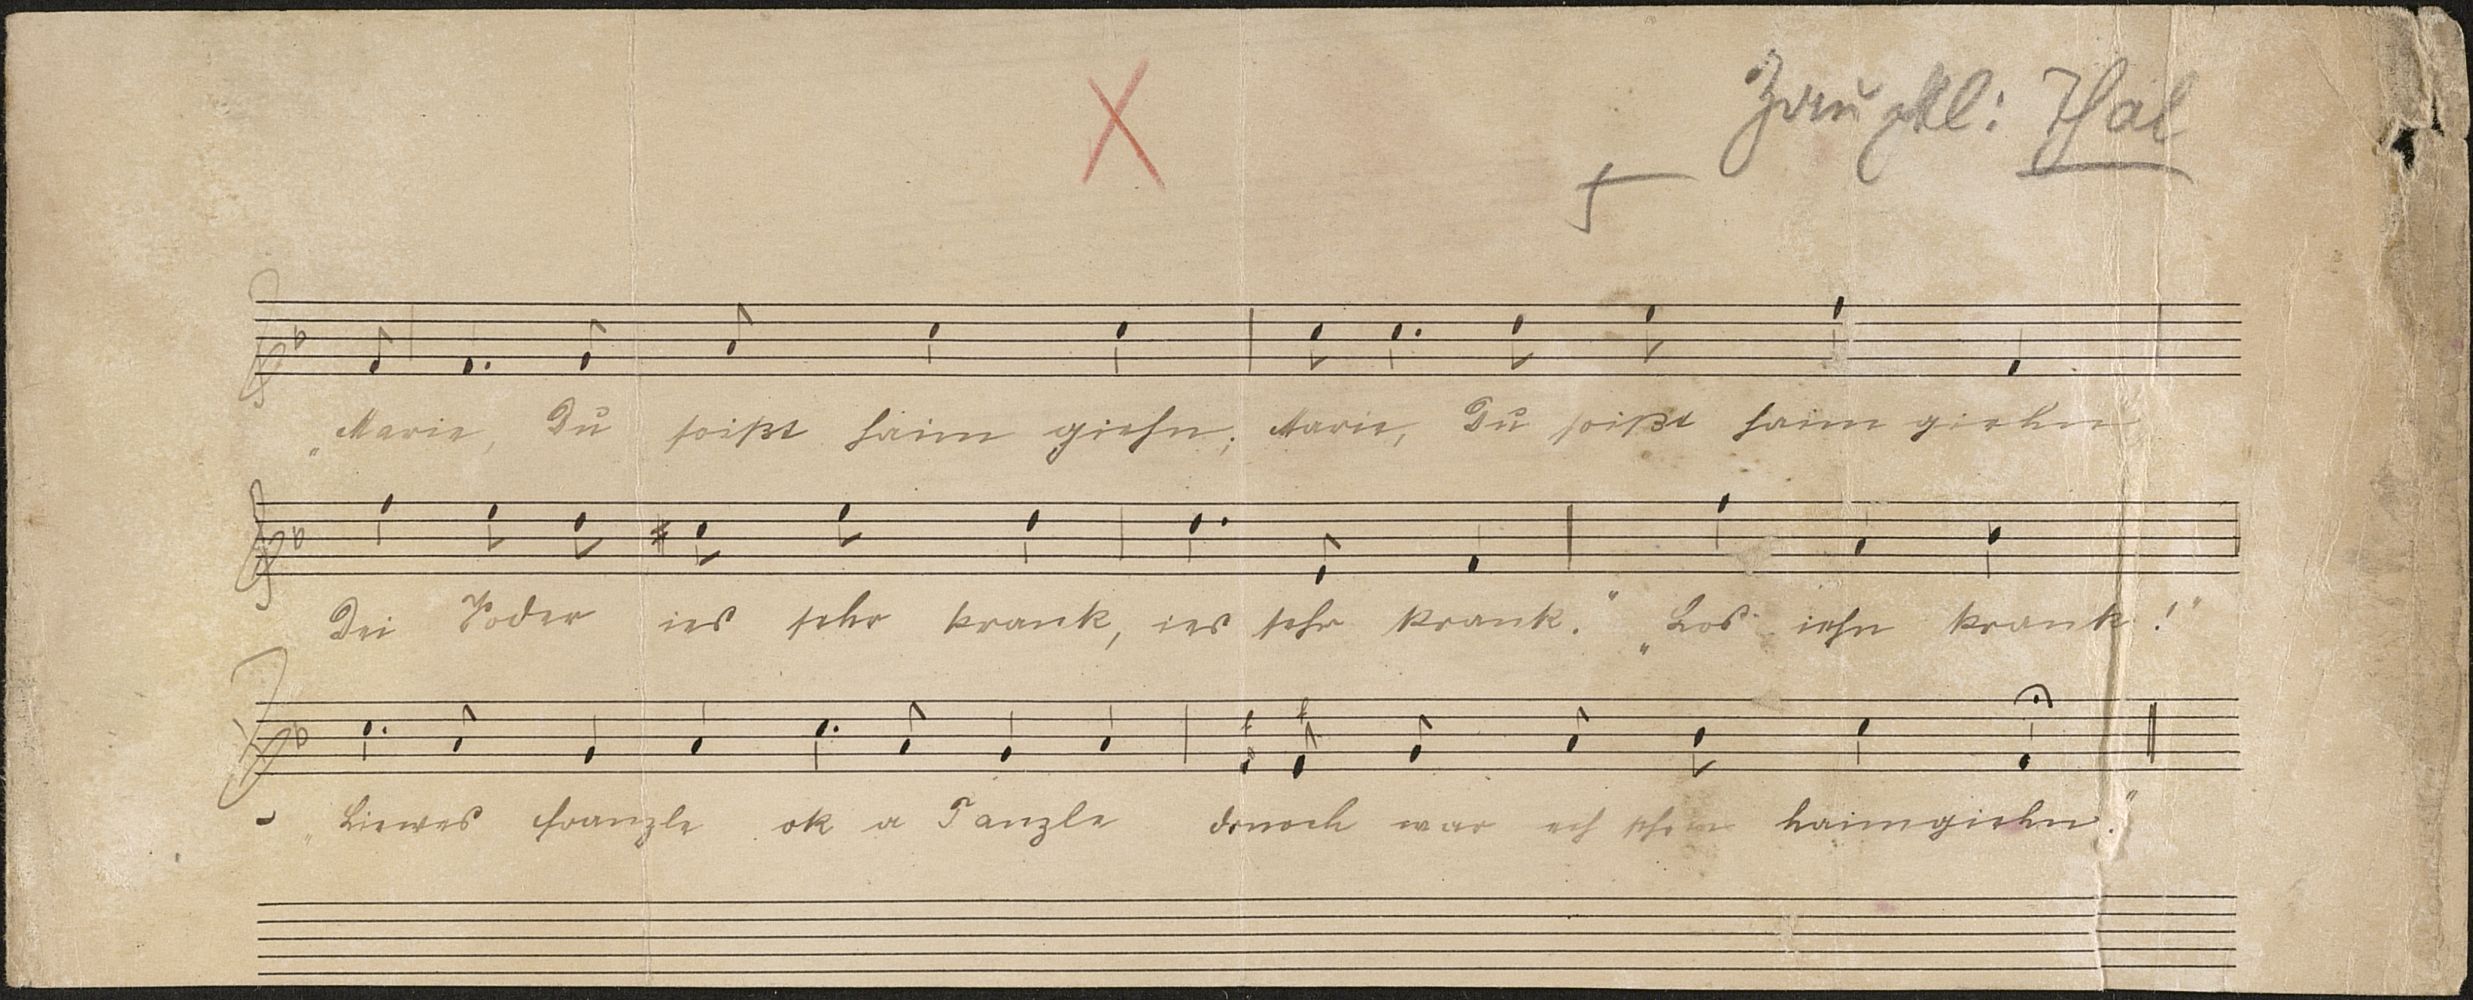 Zauchtl: Thal
„Marie, Du soißt haim giehn; Marie, Du soißt haim giehn,
Dei Voder ies sehr krank, ies sehr krank." „Los iehn krank!"
- „Liewes Franzle ok a Tanzle drnoch war ech schon haimgiehn."